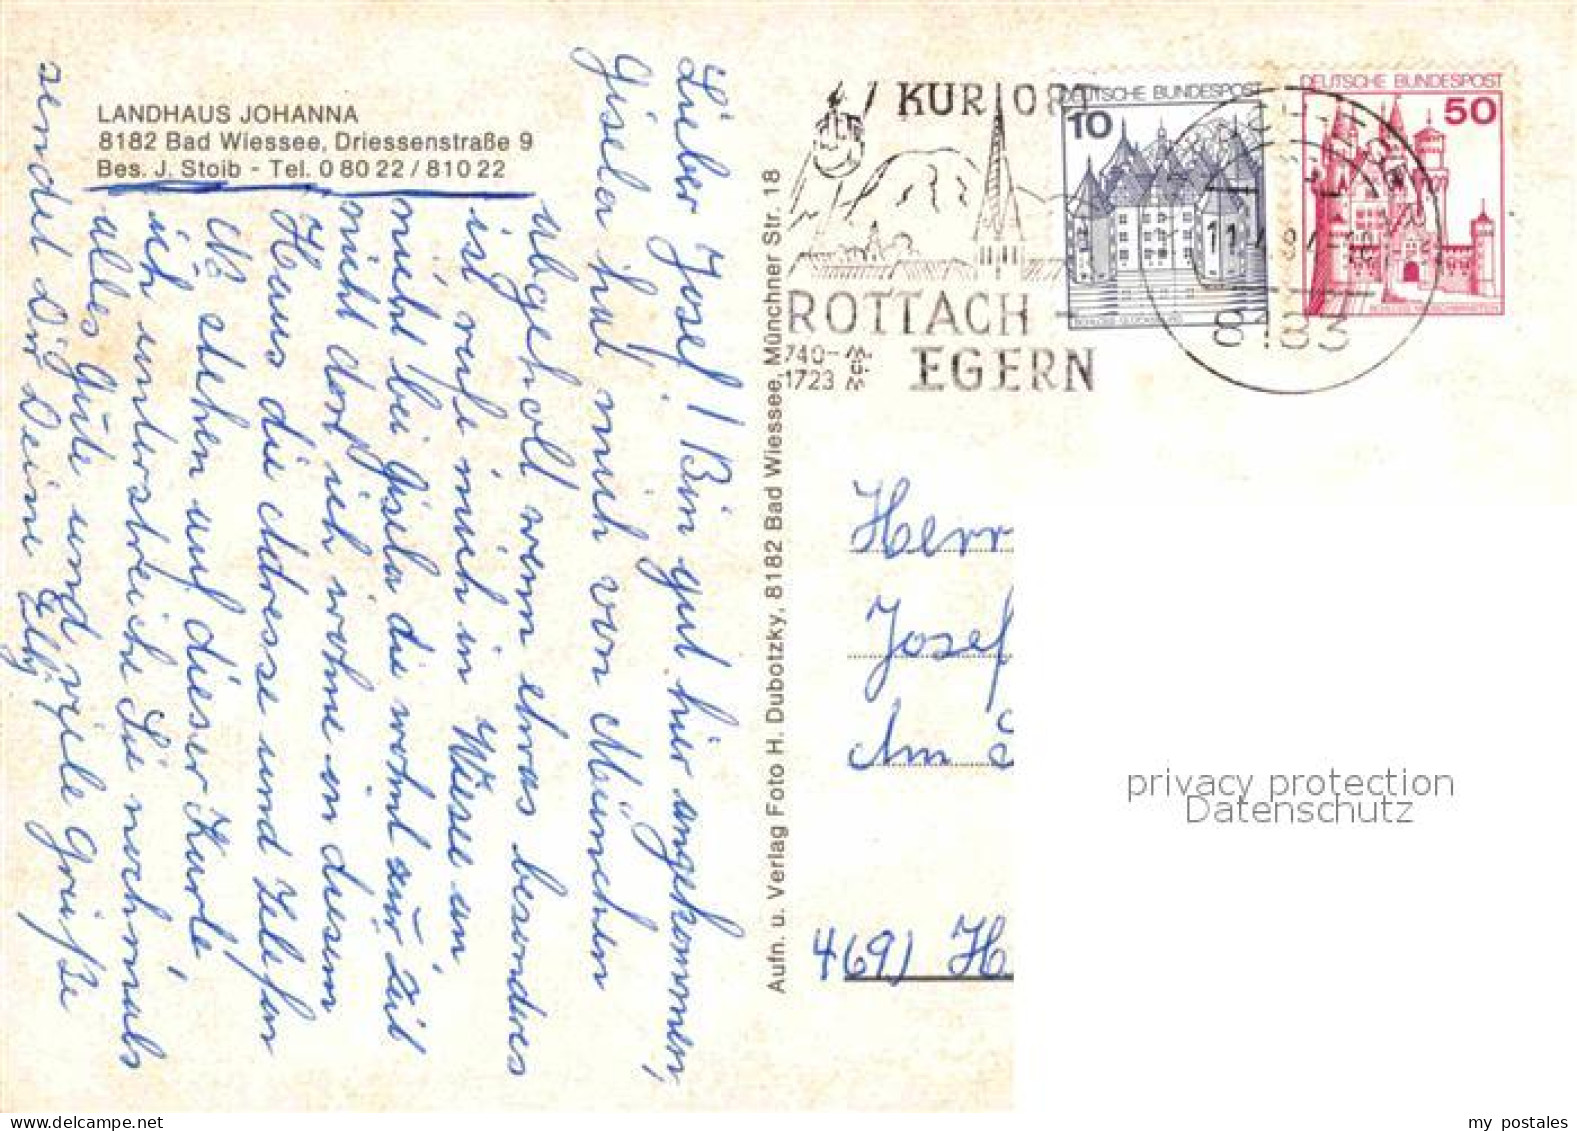 LANDHAUS JOHANNA
8182 Bad Wiessee, Driessenstraße 9
Bes. J. Stoib - Tel. 0 80 22 / 810 22
Lieber Josef! Bin gut hier angekommen,
Gisela hat mich von München
abgeholt wenn etwas besonderes
ist rufe mich in Wiesee an,
nicht bei Gisela die wohnt zur Zeit
nicht dort ich wohne in diesem
Haus die Adresse und Telefon
Nr stehen auf dieser Karte
ich unterstreiche Sie nochmals
alles Gute und viele Grüße
sendet Dir Deine Elly
Aufn. u. Verlag Foto H. Dubotzky, 8182 Bad Wiessee, Münchner Str. 18
KURORT
ROTTACH
EGERN
740-
1723 m
DEUTSCHE BUNDESPOST
10
SCHLOSS GLÜCKSBURG
DEUTSCHE BUNDESPOST
50
SCHLOSS NEUSCHWANSTEIN
8183
Herr
Josef
Am
469) H
privacy protection
Datenschutz
my postales